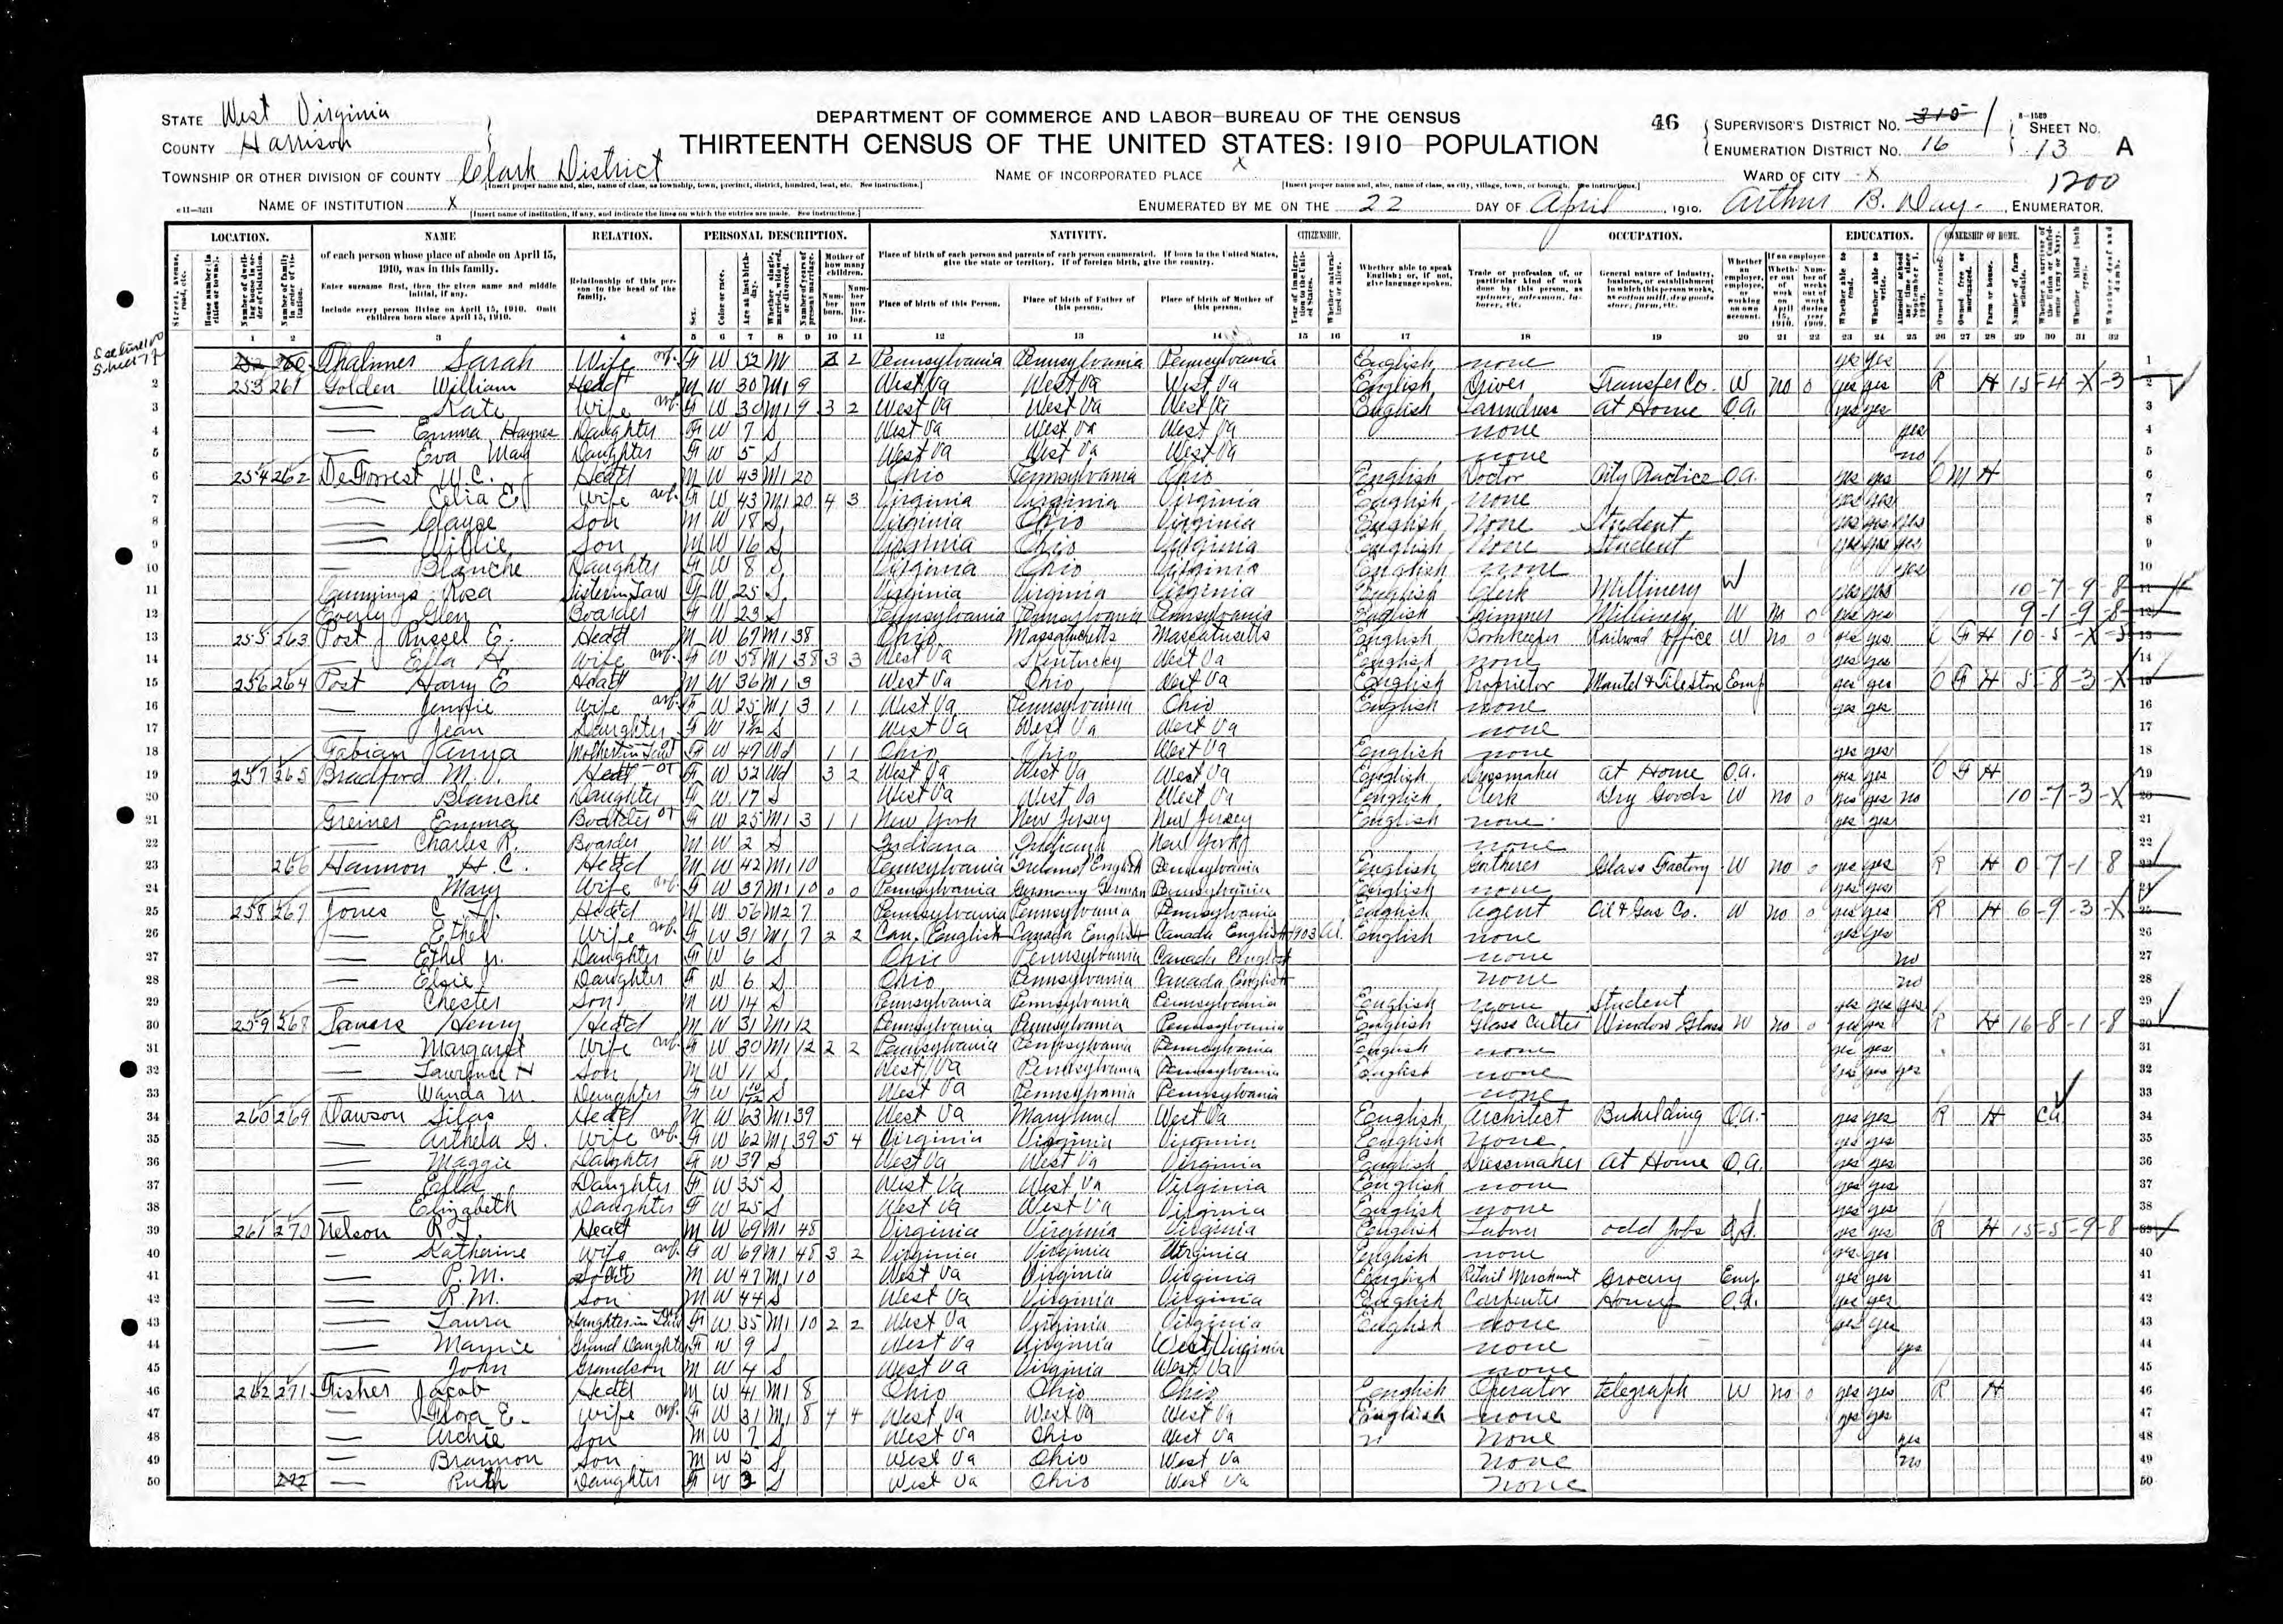 STATE West Virginia
COUNTY Harrison
DEPARTMENT OF COMMERCE AND LABOR—BUREAU OF THE CENSUS
THIRTEENTH CENSUS OF THE UNITED STATES: 1910 POPULATION
46
SUPERVISOR'S DISTRICT NO. 315 1
ENUMERATION DISTRICT NO. 16
8-1589
SHEET NO.
13 A
TOWNSHIP OR OTHER DIVISION OF COUNTY Clark District
[Insert proper name and, also, name of class, as township, town, precinct, district, hundred, beat, etc. See instructions.]
NAME OF INCORPORATED PLACE X
[Insert proper name and, also, name of class, as city, village, town, or borough. See instructions.]
WARD OF CITY X
1200
NAME OF INSTITUTION X
[Insert name of institution, if any, and indicate the lines on which the entries are made. See instructions.]
ENUMERATED BY ME ON THE 22 DAY OF April, 1910. Arthur B. Day, ENUMERATOR.
LOCATION. NAME RELATION. PERSONAL DESCRIPTION. NATIVITY. CITIZENSHIP. OCCUPATION. EDUCATION. OWNERSHIP OF HOME.
of each person whose place of abode on April 15, 1910, was in this family.
Enter surname first, then the given name and middle initial, if any.
Include every person living on April 15, 1910. Omit children born since April 15, 1910.
Relationship of this person to the head of the family.
Place of birth of each person and parents of each person enumerated. If born in the United States, give the state or territory. If of foreign birth, give the country.
Place of birth of this Person. Place of birth of Father of this person. Place of birth of Mother of this person.
Whether able to speak English; or, if not, give language spoken.
1 2 3 4 5 6 7 8 9 10 11 12 13 14 15 16 17 18 19 20 21 22 23 24 25 26 27 28 29 30 31 32
1 252 260 Sarah Wife F W 52 M 2 2 Pennsylvania Pennsylvania Pennsylvania English none yes yes
2 253 261 Golden William Head M W 30 M1 9 West Va West Va West Va English Driver Transfer Co. W no 0 yes yes R H 15-4-X-3
3 — Kate Wife F W 30 M1 9 3 2 West Va West Va West Va English Laundress At Home O.A. yes yes
4 — Emma Haynes Daughter F W 7 S West Va West Va West Va none yes
5 — Eva May Daughter F W 5 S West Va West Va West Va none no
6 254 262 DeForrest W.C. Head M W 43 M1 20 Ohio Pennsylvania Ohio English Doctor City Practice O.A. yes yes O M H
7 — Celia E. Wife F W 43 M1 20 4 3 Virginia Virginia Virginia English none yes yes
8 — Son M W 18 S Virginia Ohio Virginia English None Student yes yes yes
9 — Willie Son M W 16 S Virginia Ohio Virginia English None Student yes yes yes
10 — Blanche Daughter F W 8 S Virginia Ohio Virginia English none yes
11 Cummings Rosa Sister in Law F W 25 S Virginia Virginia Virginia English Clerk Millinery W yes yes 10-7-9-8
12 Everly Glen Boarder F W 23 S Pennsylvania Pennsylvania Pennsylvania English Trimmer Millinery W no 0 yes yes 9-1-9-8
13 255 263 Post Russel E. Head M W 67 M1 38 Ohio Massachusetts Massachusetts English Bookkeeper Railroad Office W no 0 yes yes O F H 10-5-X-3
14 — Ella H. Wife F W 58 M1 38 3 3 West Va Kentucky West Va English none yes yes
15 256 264 Post Harry E Head M W 36 M1 3 West Va Ohio West Va English Proprietor Mantel & Tile Store Emp yes yes O F H 5-8-3-X
16 — Jennie Wife F W 25 M1 3 1 1 West Va Pennsylvania Ohio English none yes yes
17 — Jean Daughter F W S West Va West Va West Va none
18 Fabian Anna Mother in Law F W 47 Wd 1 1 Ohio Ohio West Va English none yes yes
19 257 265 Bradford M. Head F W 52 Wd 3 2 West Va West Va West Va English Dressmaker At Home O.A. yes yes O F H
20 — Blanche Daughter F W 17 S West Va West Va West Va English Clerk Dry Goods W no 0 yes yes no 10-7-3-X
21 Greiner Emma Boarder F W 25 M1 3 1 1 New York New Jersey New Jersey English none yes yes
22 — Charles R. Boarder M W 2 S Indiana Indiana New York none
23 266 Hannon H.C. Head M W 42 M1 10 Pennsylvania Ireland English Pennsylvania English Gatherer Glass Factory W no 0 yes yes R H 0 7-1 8
24 — Mary Wife F W 37 M1 10 0 0 Pennsylvania Germany German Pennsylvania English none yes yes
25 258 267 Jones Head M W 56 M2 7 Pennsylvania Pennsylvania Pennsylvania English Agent Oil & Gas Co. W no 0 yes yes R H 6-9-3-X
26 — Ethel Wife F W 31 M1 7 2 2 Can. English Canada English Canada English 1903 Al. English none yes yes
27 — Ethel Jr. Daughter F W 6 S Ohio Pennsylvania Canada English none no
28 — Elsie Daughter F W 6 S Ohio Pennsylvania Canada English none no
29 — Chester Son M W 14 S Pennsylvania Pennsylvania Pennsylvania English none Student yes yes yes
30 259 268 Henry Head M W 31 M1 12 Pennsylvania Pennsylvania Pennsylvania English Glass Cutter Window Glass W no 0 yes yes R H 16-8-1-8
31 — Margaret Wife F W 30 M1 12 2 2 Pennsylvania Pennsylvania Pennsylvania English none yes yes
32 — Lawrence H Son M W 11 S West Va Pennsylvania Pennsylvania English none yes yes yes
33 — Wanda M. Daughter F W 1 10/12 S West Va Pennsylvania Pennsylvania none
34 260 269 Dawson Silas Head M W 63 M1 39 West Va Maryland West Va English Architect Buhilding O.A. yes yes R H CA
35 — Arthela G. Wife F W 62 M1 39 5 4 Virginia Virginia Virginia English None yes yes
36 — Maggie Daughter F W 37 S West Va West Va Virginia English Dressmaker At Home O.A. yes yes
37 — Ella Daughter F W 35 S West Va West Va Virginia English none yes yes
38 — Elizabeth Daughter F W 25 S West Va West Va Virginia English none yes yes
39 261 270 Nelson Head M W 69 M1 48 Virginia Virginia Virginia English Laborer odd Jobs O.A. yes yes R H 15-5-9-8
40 — Katherine Wife F W 69 M1 48 3 2 Virginia Virginia Virginia English none yes yes
41 — P.M. M W 47 M1 10 West Va Virginia Virginia English Retail Merchant Grocery Emp. yes yes
42 — R.M. Son M W 44 S West Va Virginia Virginia English Carpenter House O.A. yes yes
43 — Laura Daughter in Law F W 35 M1 10 2 2 West Va Virginia Virginia English none yes yes
44 — Mamie Grand Daughter F W 9 S West Va Virginia West Virginia none yes
45 — John Grandson M W 4 S West Va Virginia West Va none
46 262 271 Fisher Jacob Head M W 41 M1 8 Ohio Ohio Ohio English Operator telegraph W no 0 yes yes R H
47 — Flora E. Wife F W 31 M1 8 4 4 West Va West Va West Va English none yes yes
48 — Archie Son M W 7 S West Va Ohio West Va " None yes
49 — Brannon Son M W 5 S West Va Ohio West Va none no
50 272 — Ruth Daughter F W 3 S West Va Ohio West Va none